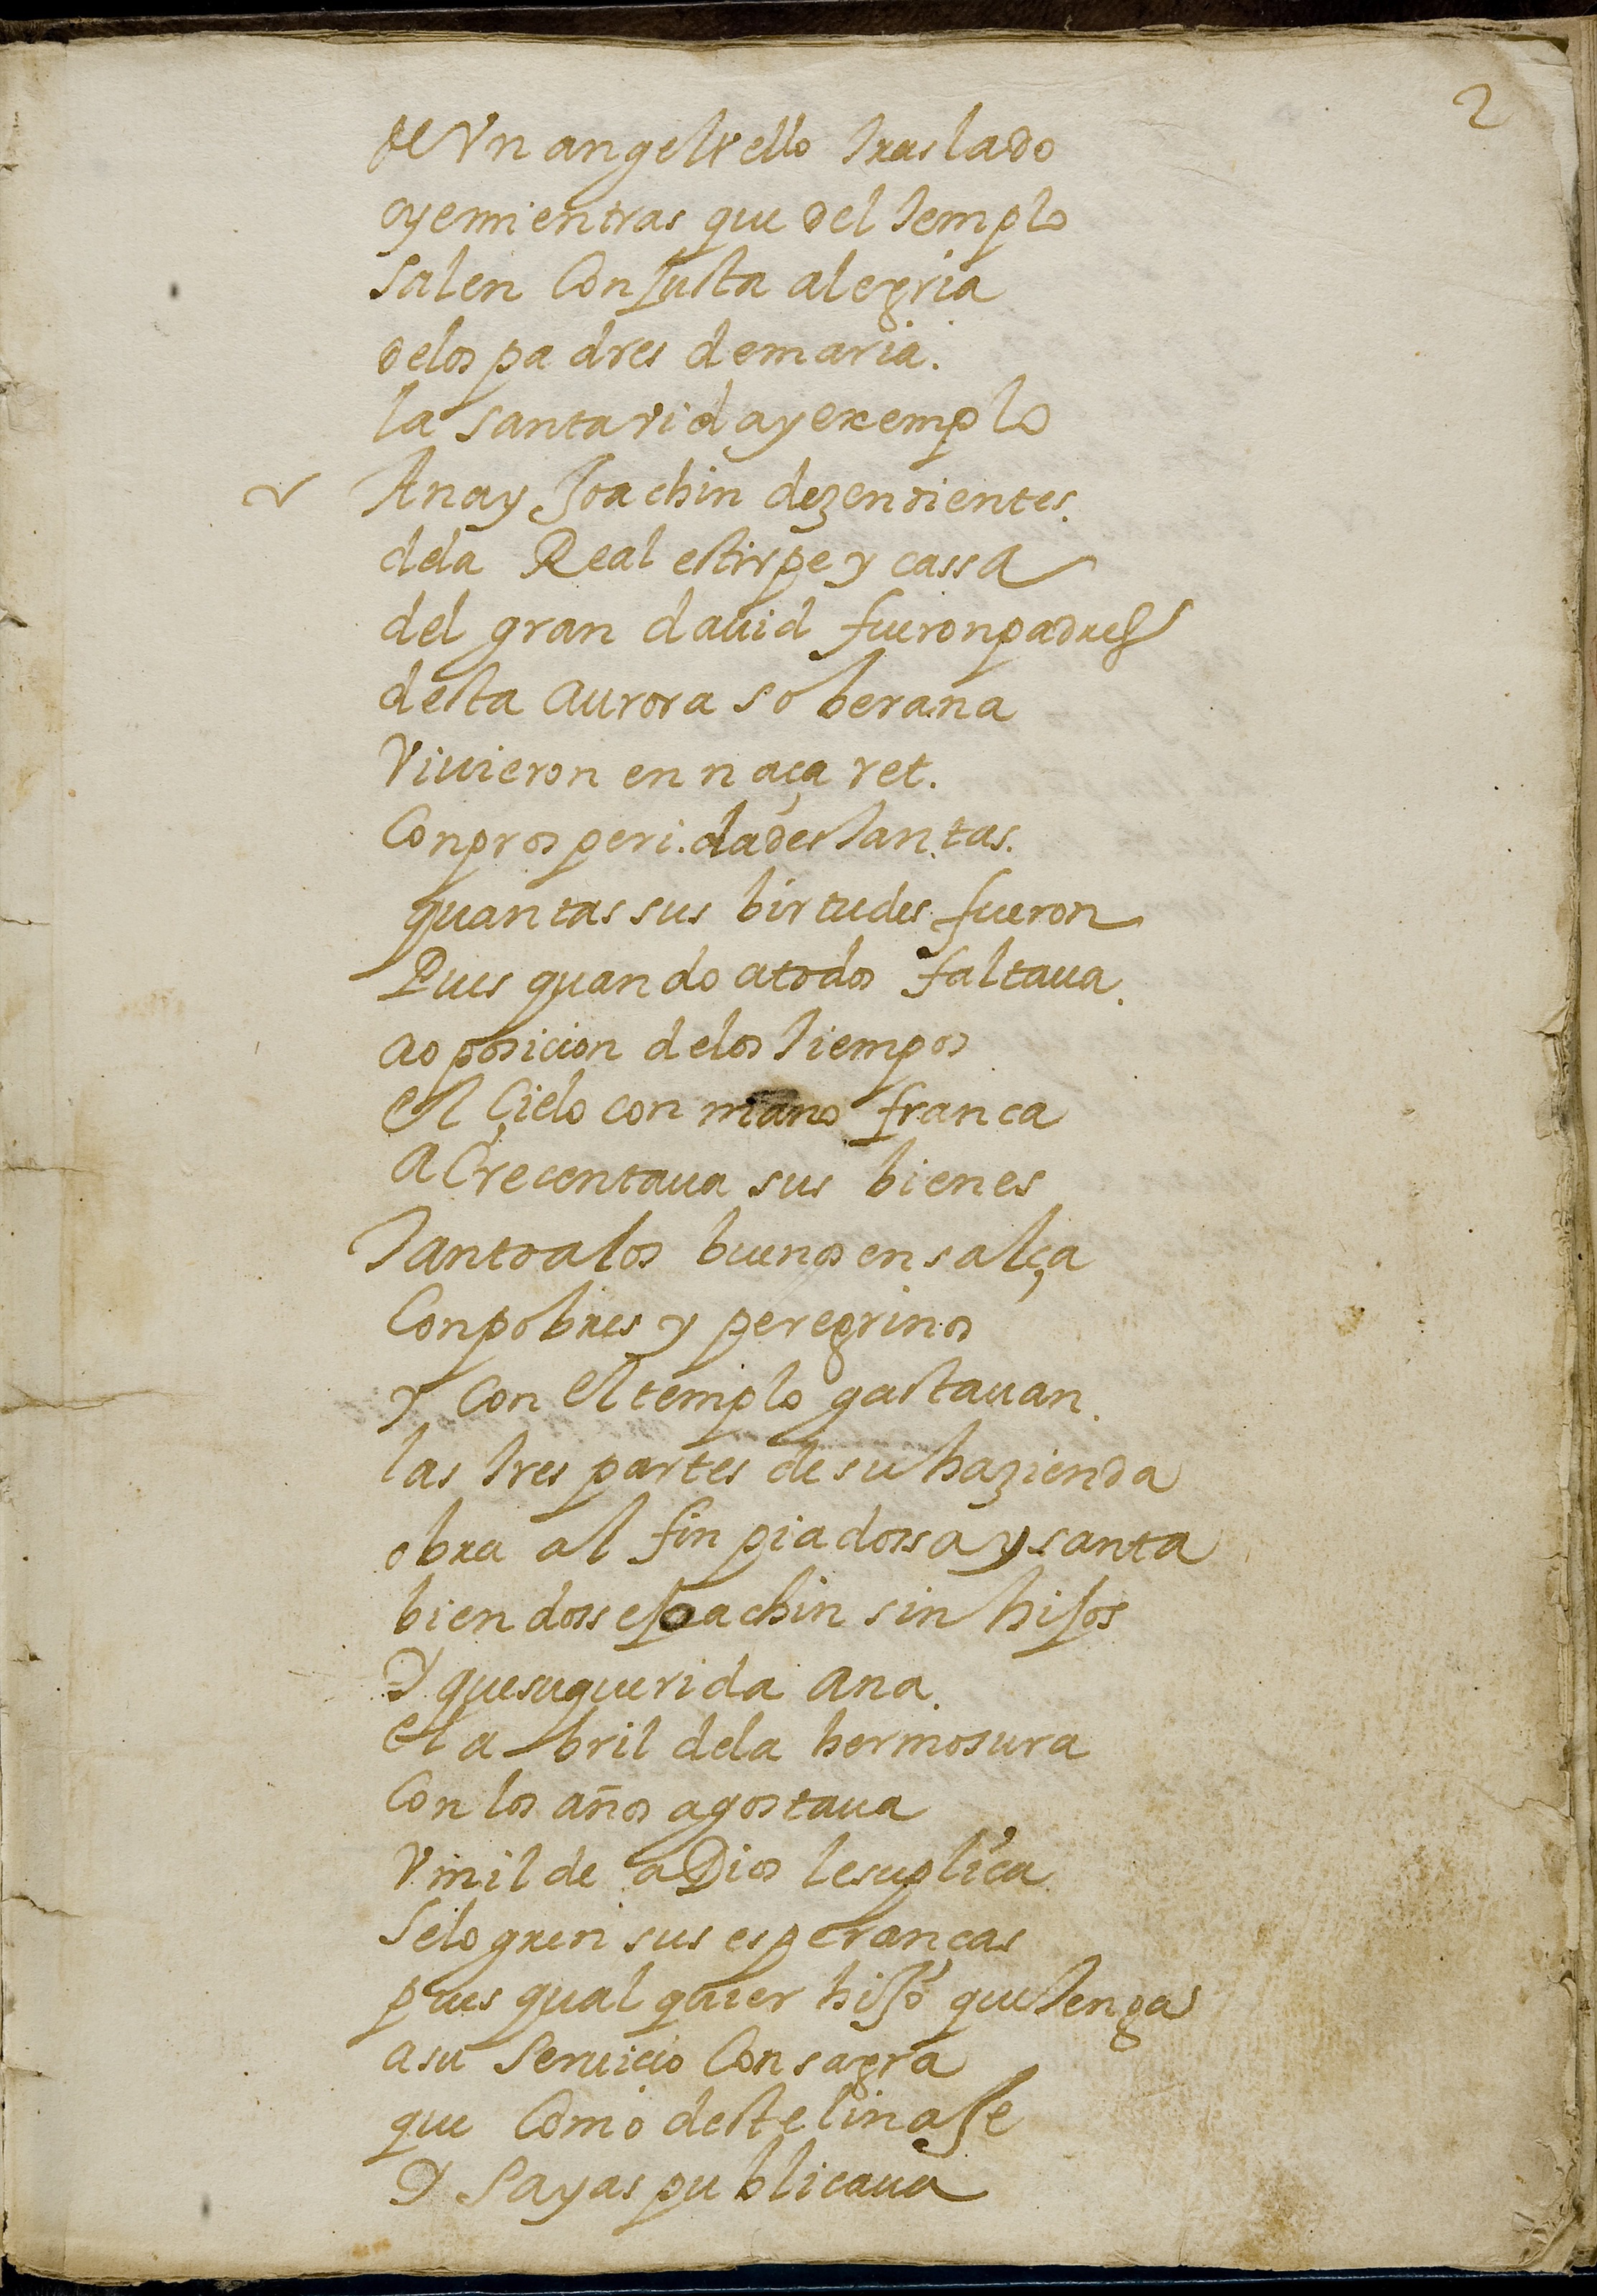 2
de Vn angel vello traslado
oye mientras que del templo
salen Con Justa alegria
de los padres de maria.
la santa vida y exemplo
Ana y Joachin dezendientes.
de la Real estirpe y cassa
del gran dauid fueron padres
desta aurora soberana
Viuieron en naçaret.
Con prosperidades tantas.
quantas sus birtudes fueron
Pues quando a todos faltaua.
a oposicion de los tiempos
el Çielo con mano franca
aCrecentaua sus bienes
tanto a los buenos ensalça
Con pobres y peregrinos
y Con el templo gastauan.
las tres partes de su hazienda
obra al fin piadossa y santa
biendosse Joachin sin hijos
Y que su querida ana.
el abril de la hermosura
Con los años agostaua
Vmilde a Dios le suplica
se logren sus esperancas
pues qual quier hijo que tenga
a su seruicio Consagra
que Como deste linaje
Y sayas publicaua